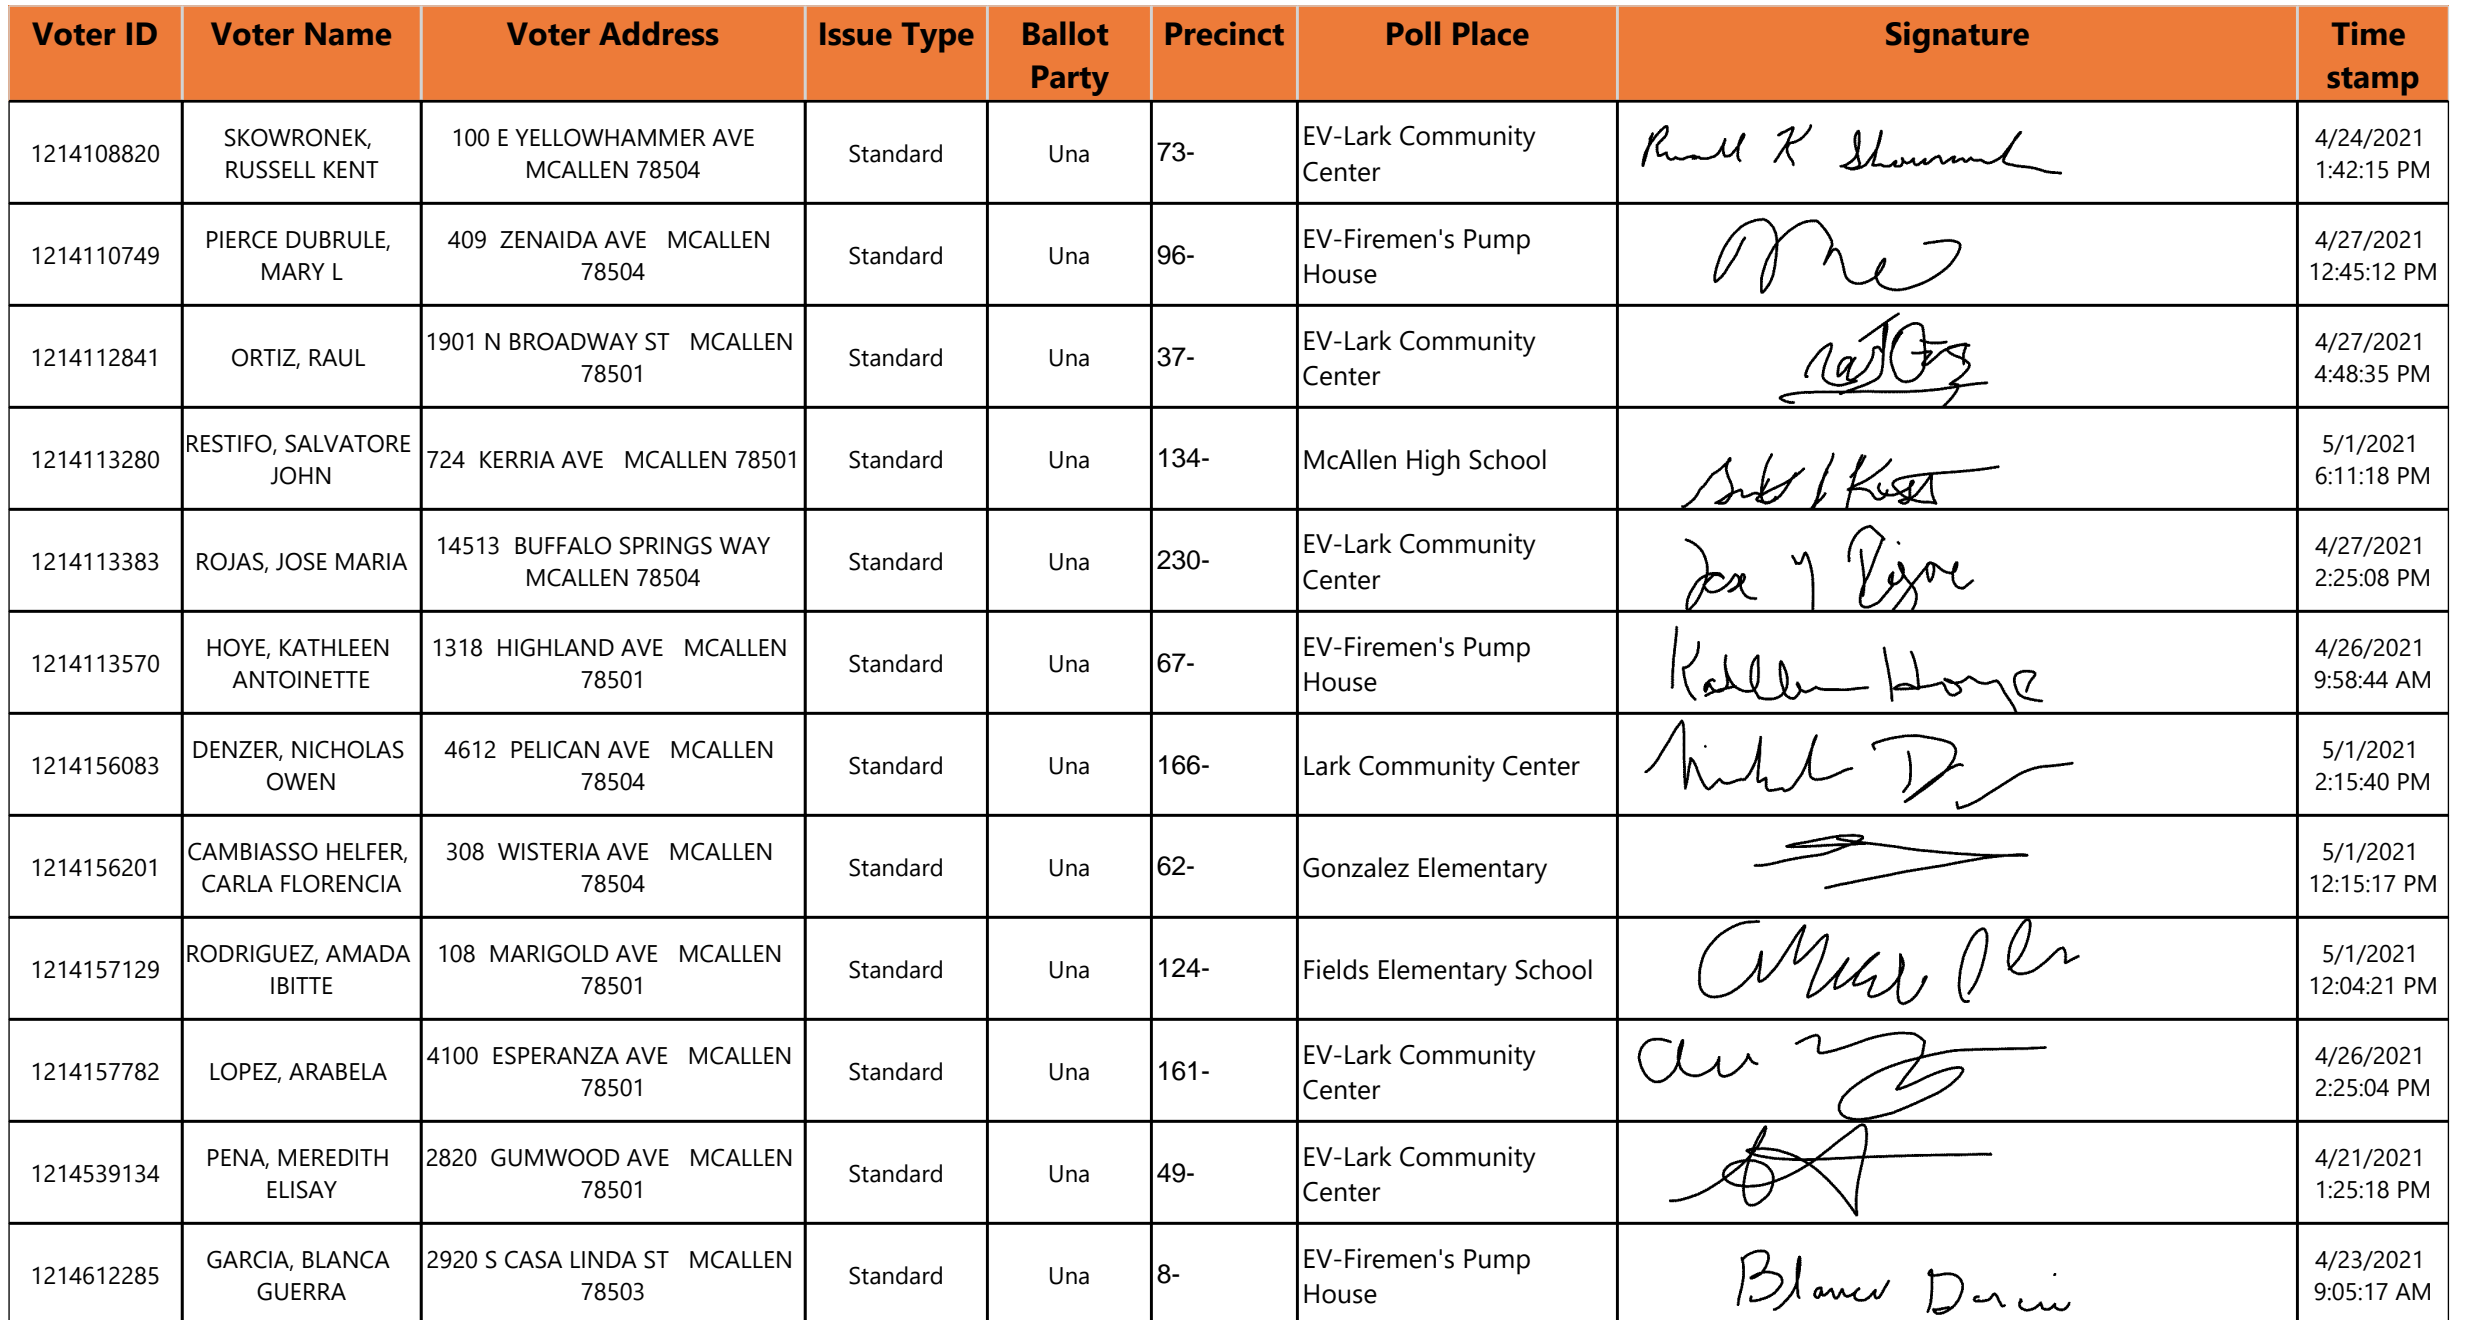 Voter ID Voter Name Voter Address Issue Type Ballot Party Precinct Poll Place Signature Time stamp
1214108820 SKOWRONEK, RUSSELL KENT 100 E YELLOWHAMMER AVE MCALLEN 78504 Standard Una 73- EV-Lark Community Center Russell K Skowronek 4/24/2021 1:42:15 PM
1214110749 PIERCE DUBRULE, MARY L 409 ZENAIDA AVE MCALLEN 78504 Standard Una 96- EV-Firemen's Pump House 4/27/2021 12:45:12 PM
1214112841 ORTIZ, RAUL 1901 N BROADWAY ST MCALLEN 78501 Standard Una 37- EV-Lark Community Center 4/27/2021 4:48:35 PM
1214113280 RESTIFO, SALVATORE JOHN 724 KERRIA AVE MCALLEN 78501 Standard Una 134- McAllen High School 5/1/2021 6:11:18 PM
1214113383 ROJAS, JOSE MARIA 14513 BUFFALO SPRINGS WAY MCALLEN 78504 Standard Una 230- EV-Lark Community Center Jose M 4/27/2021 2:25:08 PM
1214113570 HOYE, KATHLEEN ANTOINETTE 1318 HIGHLAND AVE MCALLEN 78501 Standard Una 67- EV-Firemen's Pump House Kathleen Hoye 4/26/2021 9:58:44 AM
1214156083 DENZER, NICHOLAS OWEN 4612 PELICAN AVE MCALLEN 78504 Standard Una 166- Lark Community Center 5/1/2021 2:15:40 PM
1214156201 CAMBIASSO HELFER, CARLA FLORENCIA 308 WISTERIA AVE MCALLEN 78504 Standard Una 62- Gonzalez Elementary 5/1/2021 12:15:17 PM
1214157129 RODRIGUEZ, AMADA IBITTE 108 MARIGOLD AVE MCALLEN 78501 Standard Una 124- Fields Elementary School 5/1/2021 12:04:21 PM
1214157782 LOPEZ, ARABELA 4100 ESPERANZA AVE MCALLEN 78501 Standard Una 161- EV-Lark Community Center 4/26/2021 2:25:04 PM
1214539134 PENA, MEREDITH ELISAY 2820 GUMWOOD AVE MCALLEN 78501 Standard Una 49- EV-Lark Community Center 4/21/2021 1:25:18 PM
1214612285 GARCIA, BLANCA GUERRA 2920 S CASA LINDA ST MCALLEN 78503 Standard Una 8- EV-Firemen's Pump House Blanca Garcia 4/23/2021 9:05:17 AM